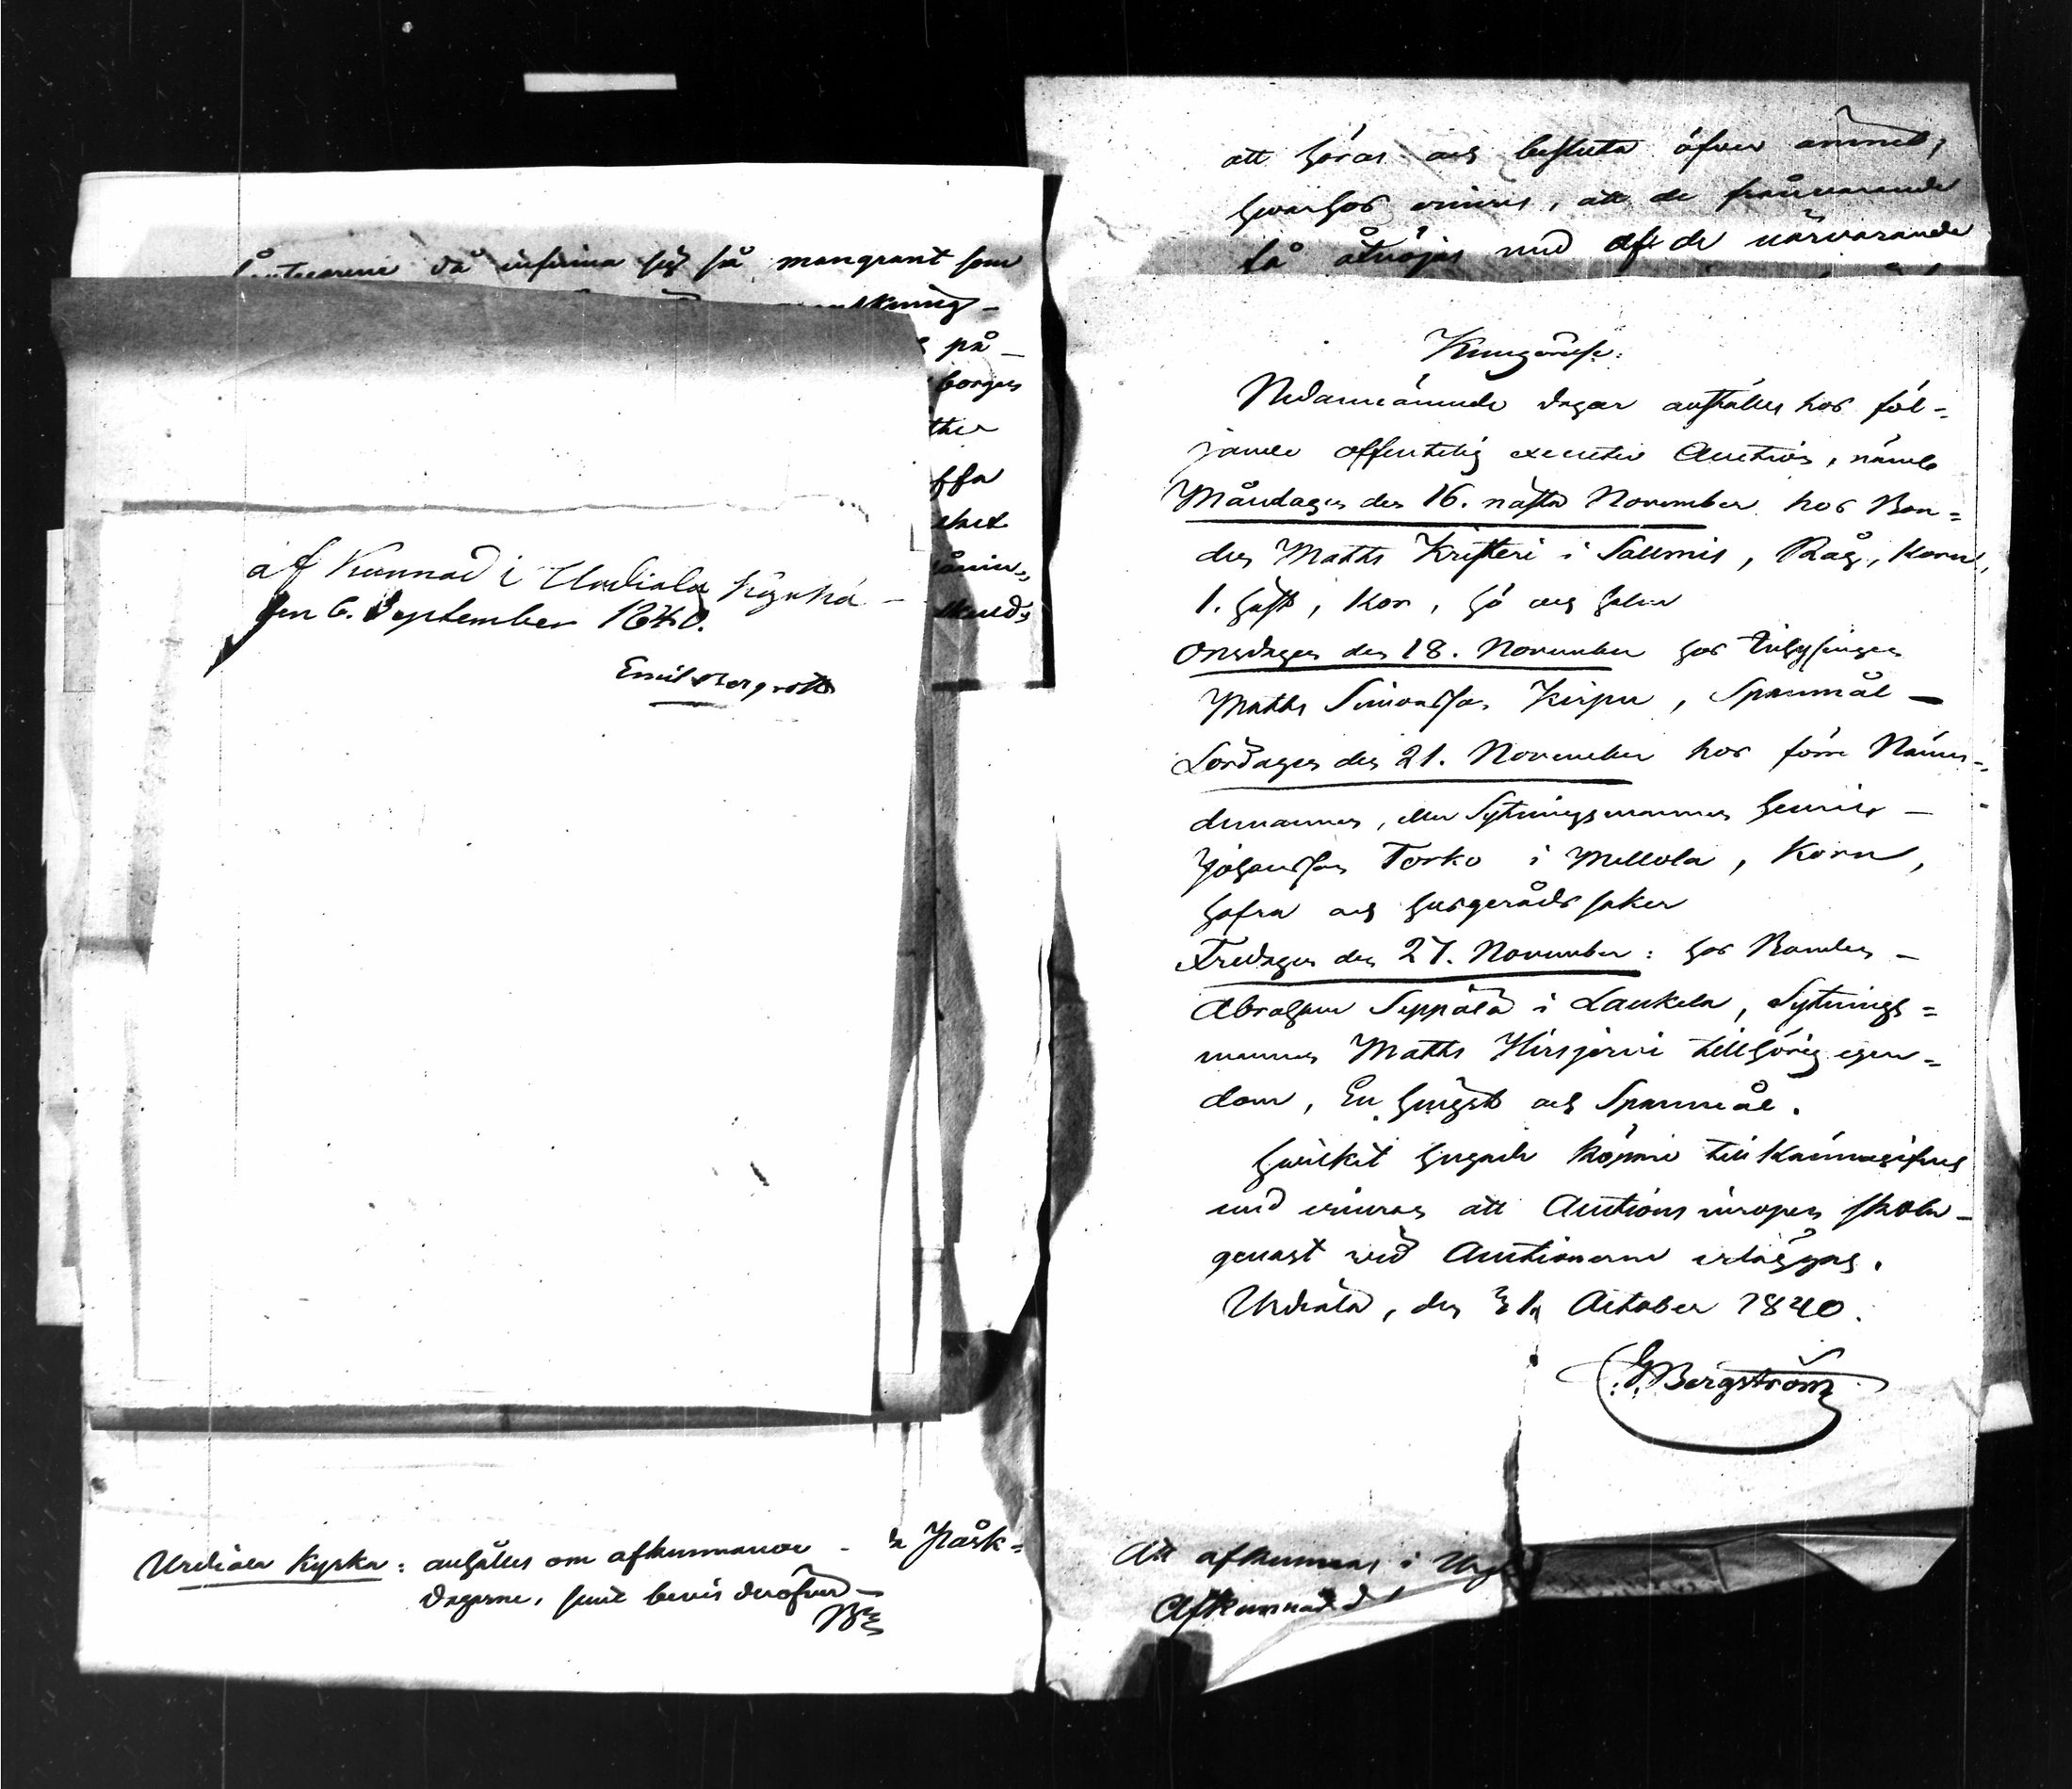 då infinna sig så mangrant som
på
borgen
af Kunnad i Urdiala kyrka
den 6. September 1840.
Emil Bergroth
Urdiala Kyrka: anhålles om afkunnande Påsk-
dagarne, samt bevis deröfver
att höras och besluta öfver ämnet,
hvarhos erinras, att de frånvarande
få åtnöjas med af de närvarande
Kungörelse:
Nedannämnde dagar anställes hos föl=
jande offentelig executiv Auction, nämle
Måndagen den 16. nästa November hos Bon=
den Matts Kristeri i Salmis, Råg, Korn,
1. häst, Kor, hö och halm
Onsdagen den 18. November hos Inhysingen
Matts Simonsson Kirpu, Spanmål
Lördagen den 21. November hos förre Nämn=
demannen, eller Sytningsmannen Henric
Johansson Torko i Mellola, Korn,
hafra och husgeråds saker
Fredagen den 27. November: hos Bonden
Abraham Seppälä i Laukela, Sytnings=
mannen Matts Hirsjervi tillhörig egen=
dom, En hingst och Spanmål.
Hvilket hugade köpare till kännagifves
med erinran att Auctions inropen skola
genast vid Auctionerne erläggas.
Urdiala, den 31 October 1840.
G. Bergström
Att afkunnas i
Afkunnad d